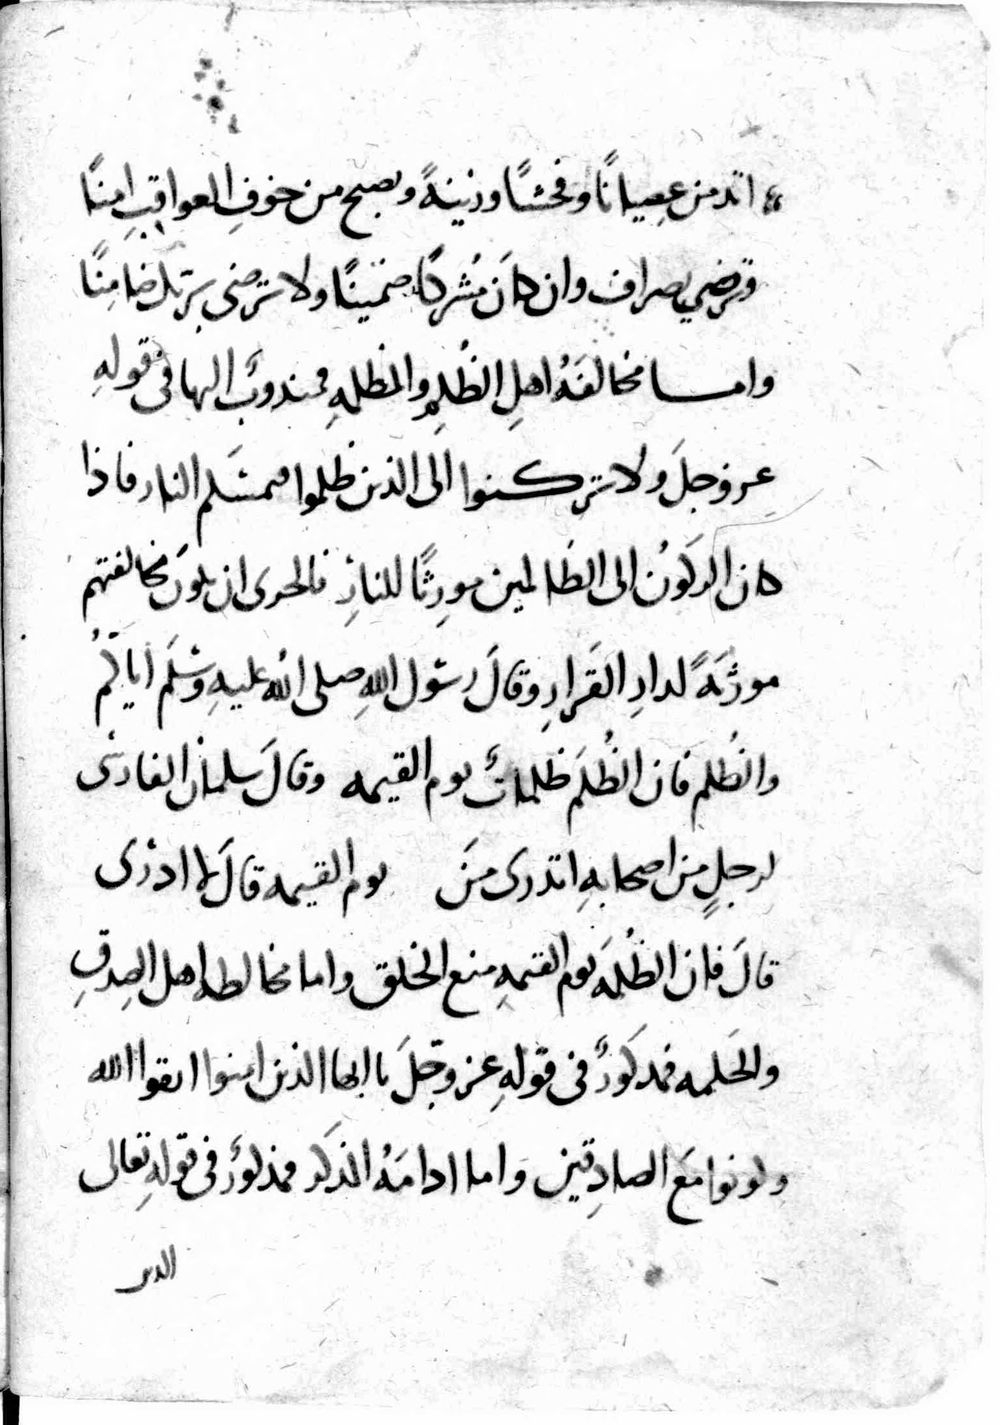 اتدمن عصيانًا وفحشًا وزنيةً ويصبح من خوفِ العواقبِ امنًا
ترضي بصراف وان كانَ مُشركًا ضمينًا ولا ترضى بربك ضامِنًا
واما مخالفَةُ اهلِ الظُلمِ والمظلمهِ فمندوبٌ اليها فى قولهِ
عز وجلَ ولا تركنوا الى الذين ظلموا فتمسَكم النار فاذا
كان الركونُ الى الظَالمين مورِثًا للنارِ فالحرى ان يكونَ مخالفتهم
مورثَةً لدارِ القَرارِ وقالَ رسول اللهِ صلى الله عليهِ وسَلَم اياكُم
والظُلم فان الظُلَم ظلماتٌ يوم القيمه وقالَ سلمان الفارسى
لرجلٍ من اصحابهِ اتدرى منَ يوم القيمه قالَ لا ادرى
قالَ فان الظُلمَه يوم القيمهِ منع الخلق واما مخالطه اهل الصِدقِ
والحَلمه فمدكَورٌ فى قولهِ عز وجَلَ يا ايها الذين امنوا اتقوا الله
وكونوا مَعَ الصادِقين وَاما ادامَهُ الذكَر فمذكورٌ فى قولهِ تعالى
الدين